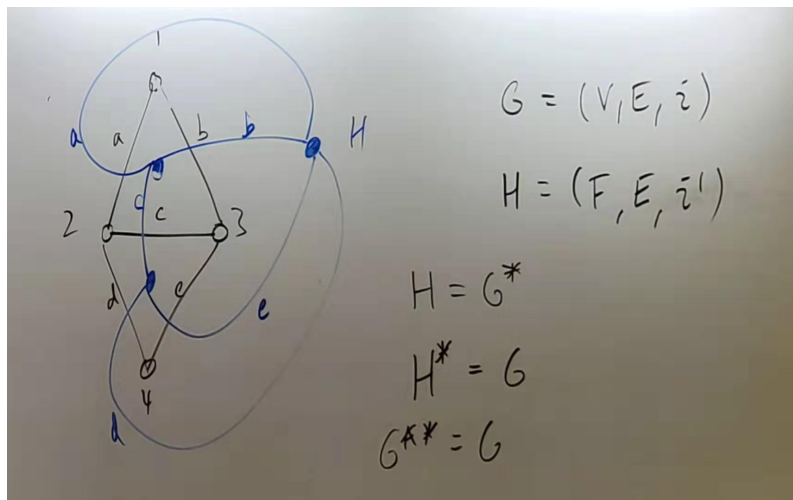 1
a
a
b
b
H
c
c
2
3
d
e
e
4
d
G = (V, E, i)
H = (F, E, i')
H = G*
H* = G
G** = G